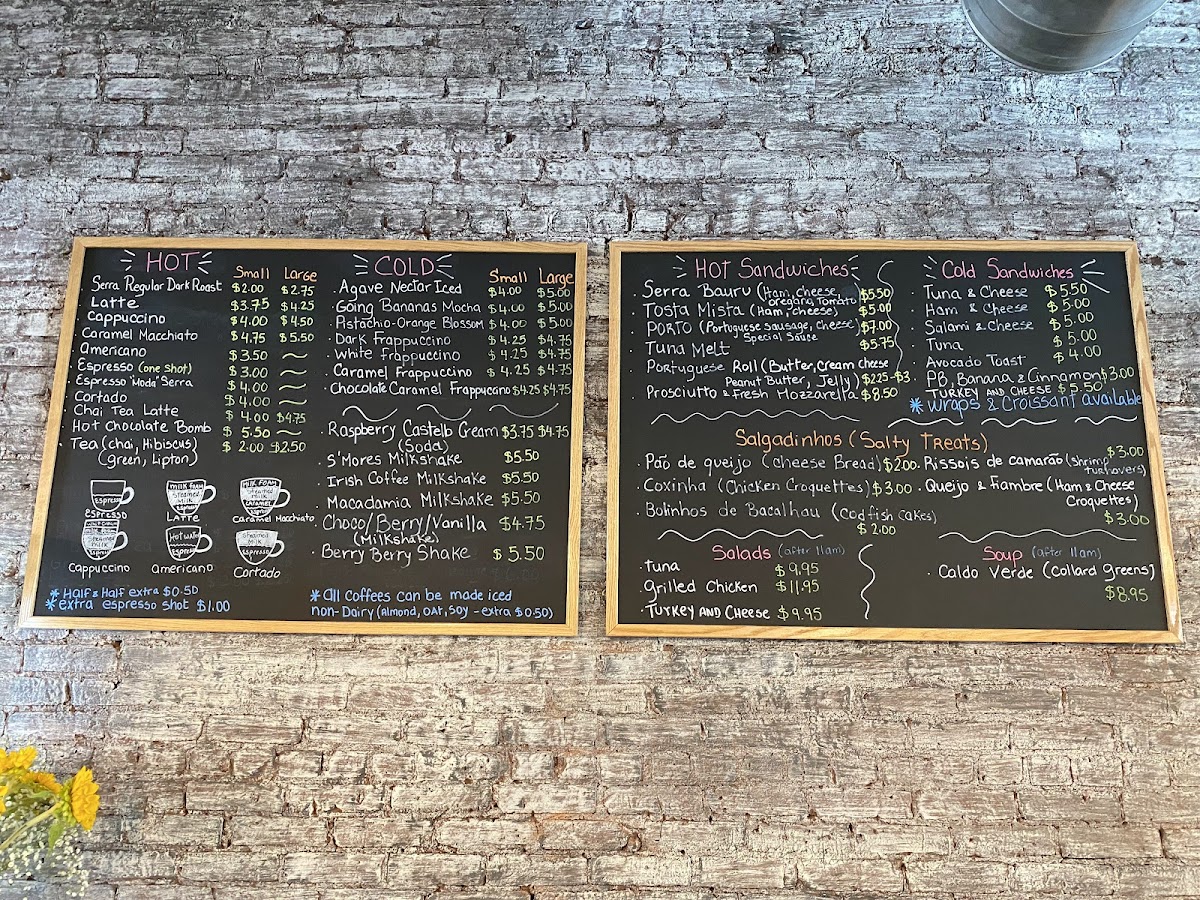 HOT
Small Large
Serra Regular Dark Roast $2.00 $2.75
Latte $3.75 $4.25
Cappuccino $4.00 $4.50
Caramel Macchiato $4.75 $5.50
Americano $3.50 ~
Espresso (one shot) $3.00 ~
Espresso "Moda" Serra $4.00 ~
Cortado $4.00 ~
Chai Tea Latte $4.00 $4.75
Hot Chocolate Bomb $5.50 ~
Tea (chai, Hibiscus) $2.00 $2.50
(green, Lipton)
Espresso
Espresso
milk foam
steamed
milk
Espresso
Latte
milk foam
steamed
milk
caramel
espresso
Caramel Macchiato
steamed
milk
Espresso
Cappuccino
Hot water
Espresso
Americano
steamed
milk
Espresso
Cortado
* Half & Half extra $0.50
* extra espresso shot $1.00
COLD
Small Large
. Agave Nectar Iced $4.00 $5.00
. Going Bananas Mocha $4.00 $5.00
. Pistachio-Orange Blossom $4.00 $5.00
. Dark Frappuccino $4.25 $4.75
. White Frappuccino $4.25 $4.75
. Caramel Frappuccino $4.25 $4.75
. Chocolate Caramel Frappuccino $4.25 $4.75
. Raspberry Castelo Cream $3.75 $4.75
(Soda)
. S'Mores Milkshake $5.50
. Irish Coffee Milkshake $5.50
. Macadamia Milkshake $5.50
. Choco/Berry/Vanilla $4.75
(Milkshake)
. Berry Berry Shake $5.50
* All coffees can be made iced
non-Dairy (Almond, Oat, Soy - extra $0.50)
HOT Sandwiches
. Serra Bauru (Ham, cheese, $5.50
oregano, Tomato
. Tosta Mista (Ham, cheese) $5.00
. PORTO (Portuguese sausage, cheese) $7.00
Special Sauce
. Tuna Melt $5.75
. Portuguese Roll (Butter, Cream cheese
Peanut Butter, Jelly) $2.25-$3
. Prosciutto & Fresh Mozzarella $8.50
Cold Sandwiches
. Tuna & Cheese $5.50
. Ham & Cheese $5.00
. Salami & Cheese $5.00
. Tuna $5.00
. Avocado Toast $4.00
. PB, Banana & Cinnamon $3.00
. TURKEY AND CHEESE $5.50
* Wraps & Croissant available
Salgadinhos (Salty Treats)
. Pão de queijo (Cheese Bread) $2.00
. Coxinha (Chicken Croquettes) $3.00
. Bolinhos de Bacalhau (Codfish Cakes)
$2.00
. Rissois de camarão (Shrimp $3.00
turnovers)
. Queijo & Fiambre (Ham & Cheese
Croquettes)
$3.00
Salads (after 11am)
. Tuna $9.95
. Grilled Chicken $11.95
. TURKEY AND CHEESE $9.95
Soup (after 11am)
. Caldo Verde (Collard Greens)
$8.95